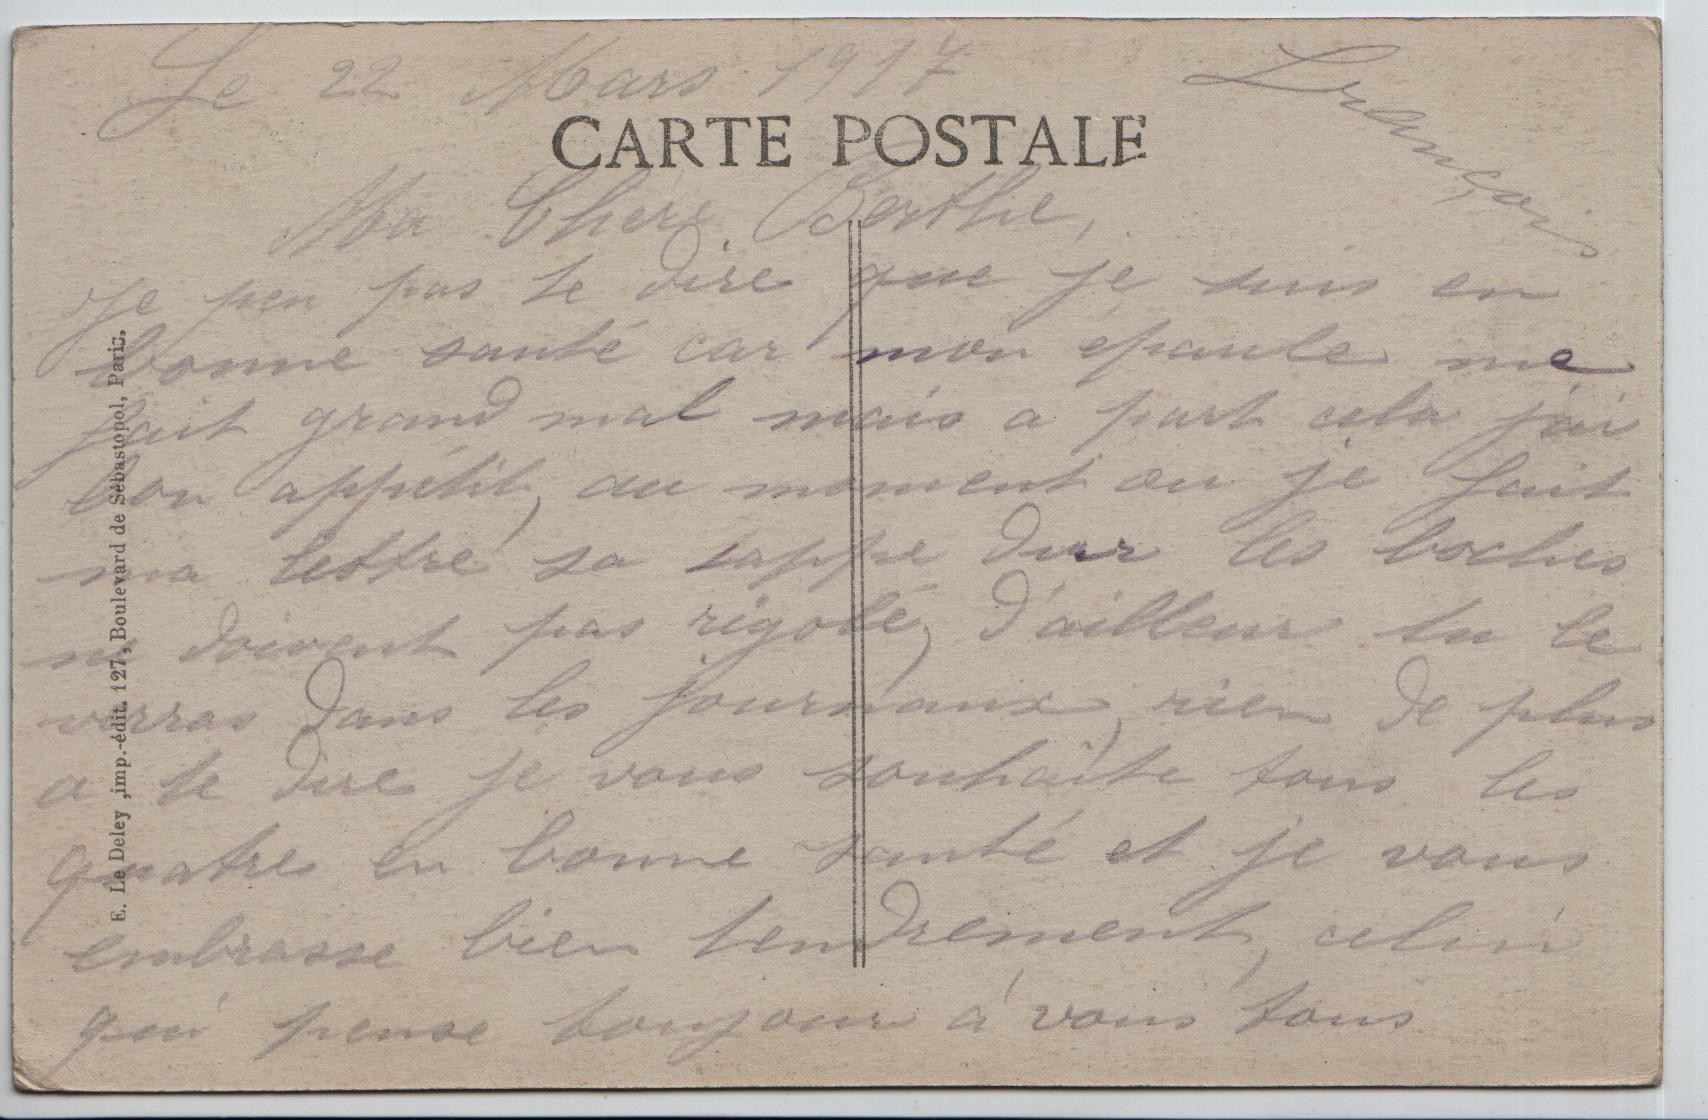 Le 22 Mars 1917
François
CARTE POSTALE
Ma Chère Berthe,
Je peu pas te dire que je suis en
bonne santé car mon épaule me
fait grand mal mais a part cela j'ai
bon appétit, au moment ou je fait
ma lettre sa tappe dur les boches
ne doivent pas rigolé, d'ailleur tu le
verras dans les journaux, rien de plus
a te dire je vous souhaite tous les
quatres en bonne santé et je vous
embrasse bien tendrement, celui
qui pense toujour à vous tous
E. Le Deley, imp.-édit. 127, Boulevard de Sébastopol, Paris.